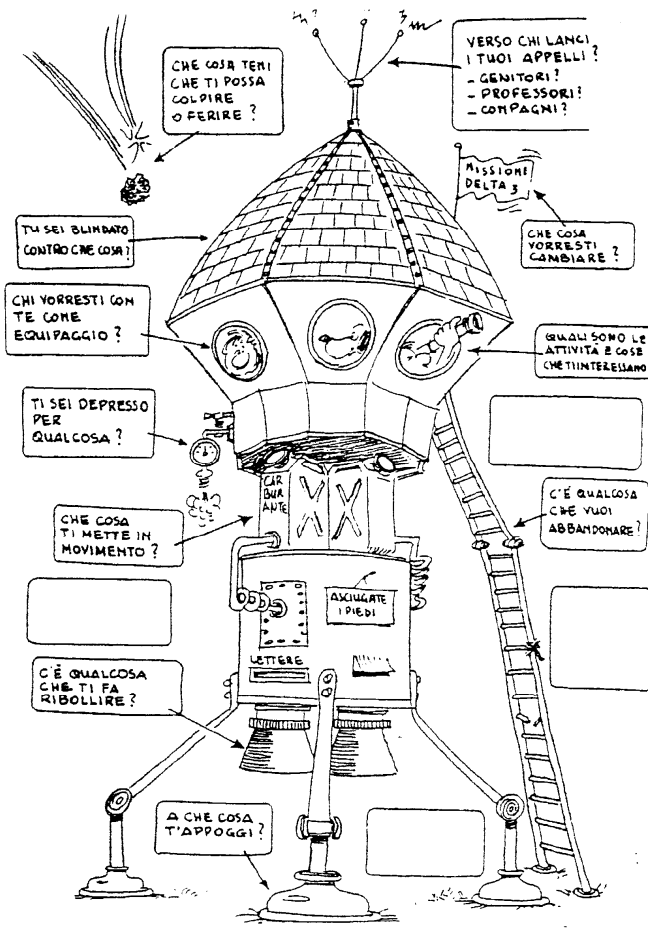 CHE COSA TEMI
CHE TI POSSA
COLPIRE
O FERIRE?
VERSO CHI LANCI
I TUOI APPELLI?
- GENITORI?
- PROFESSORI?
- COMPAGNI?
MISSIONE
DELTA 3
TU SEI BLINDATO
CONTRO CHE COSA?
CHE COSA
VORRESTI
CAMBIARE?
CHI VORRESTI CON
TE COME
EQUIPAGGIO?
QUALI SONO LE
ATTIVITÀ E COSE
CHE TI INTERESSANO
TI SEI DEPRESSO
PER
QUALCOSA?
CAR
BUR
ANTE
C'È QUALCOSA
CHE VUOI
ABBANDONARE?
CHE COSA
TI METTE IN
MOVIMENTO?
ASCIUGATE
I PIEDI
LETTERE
C'È QUALCOSA
CHE TI FA
RIBOLLIRE?
A CHE COSA
T'APPOGGI?